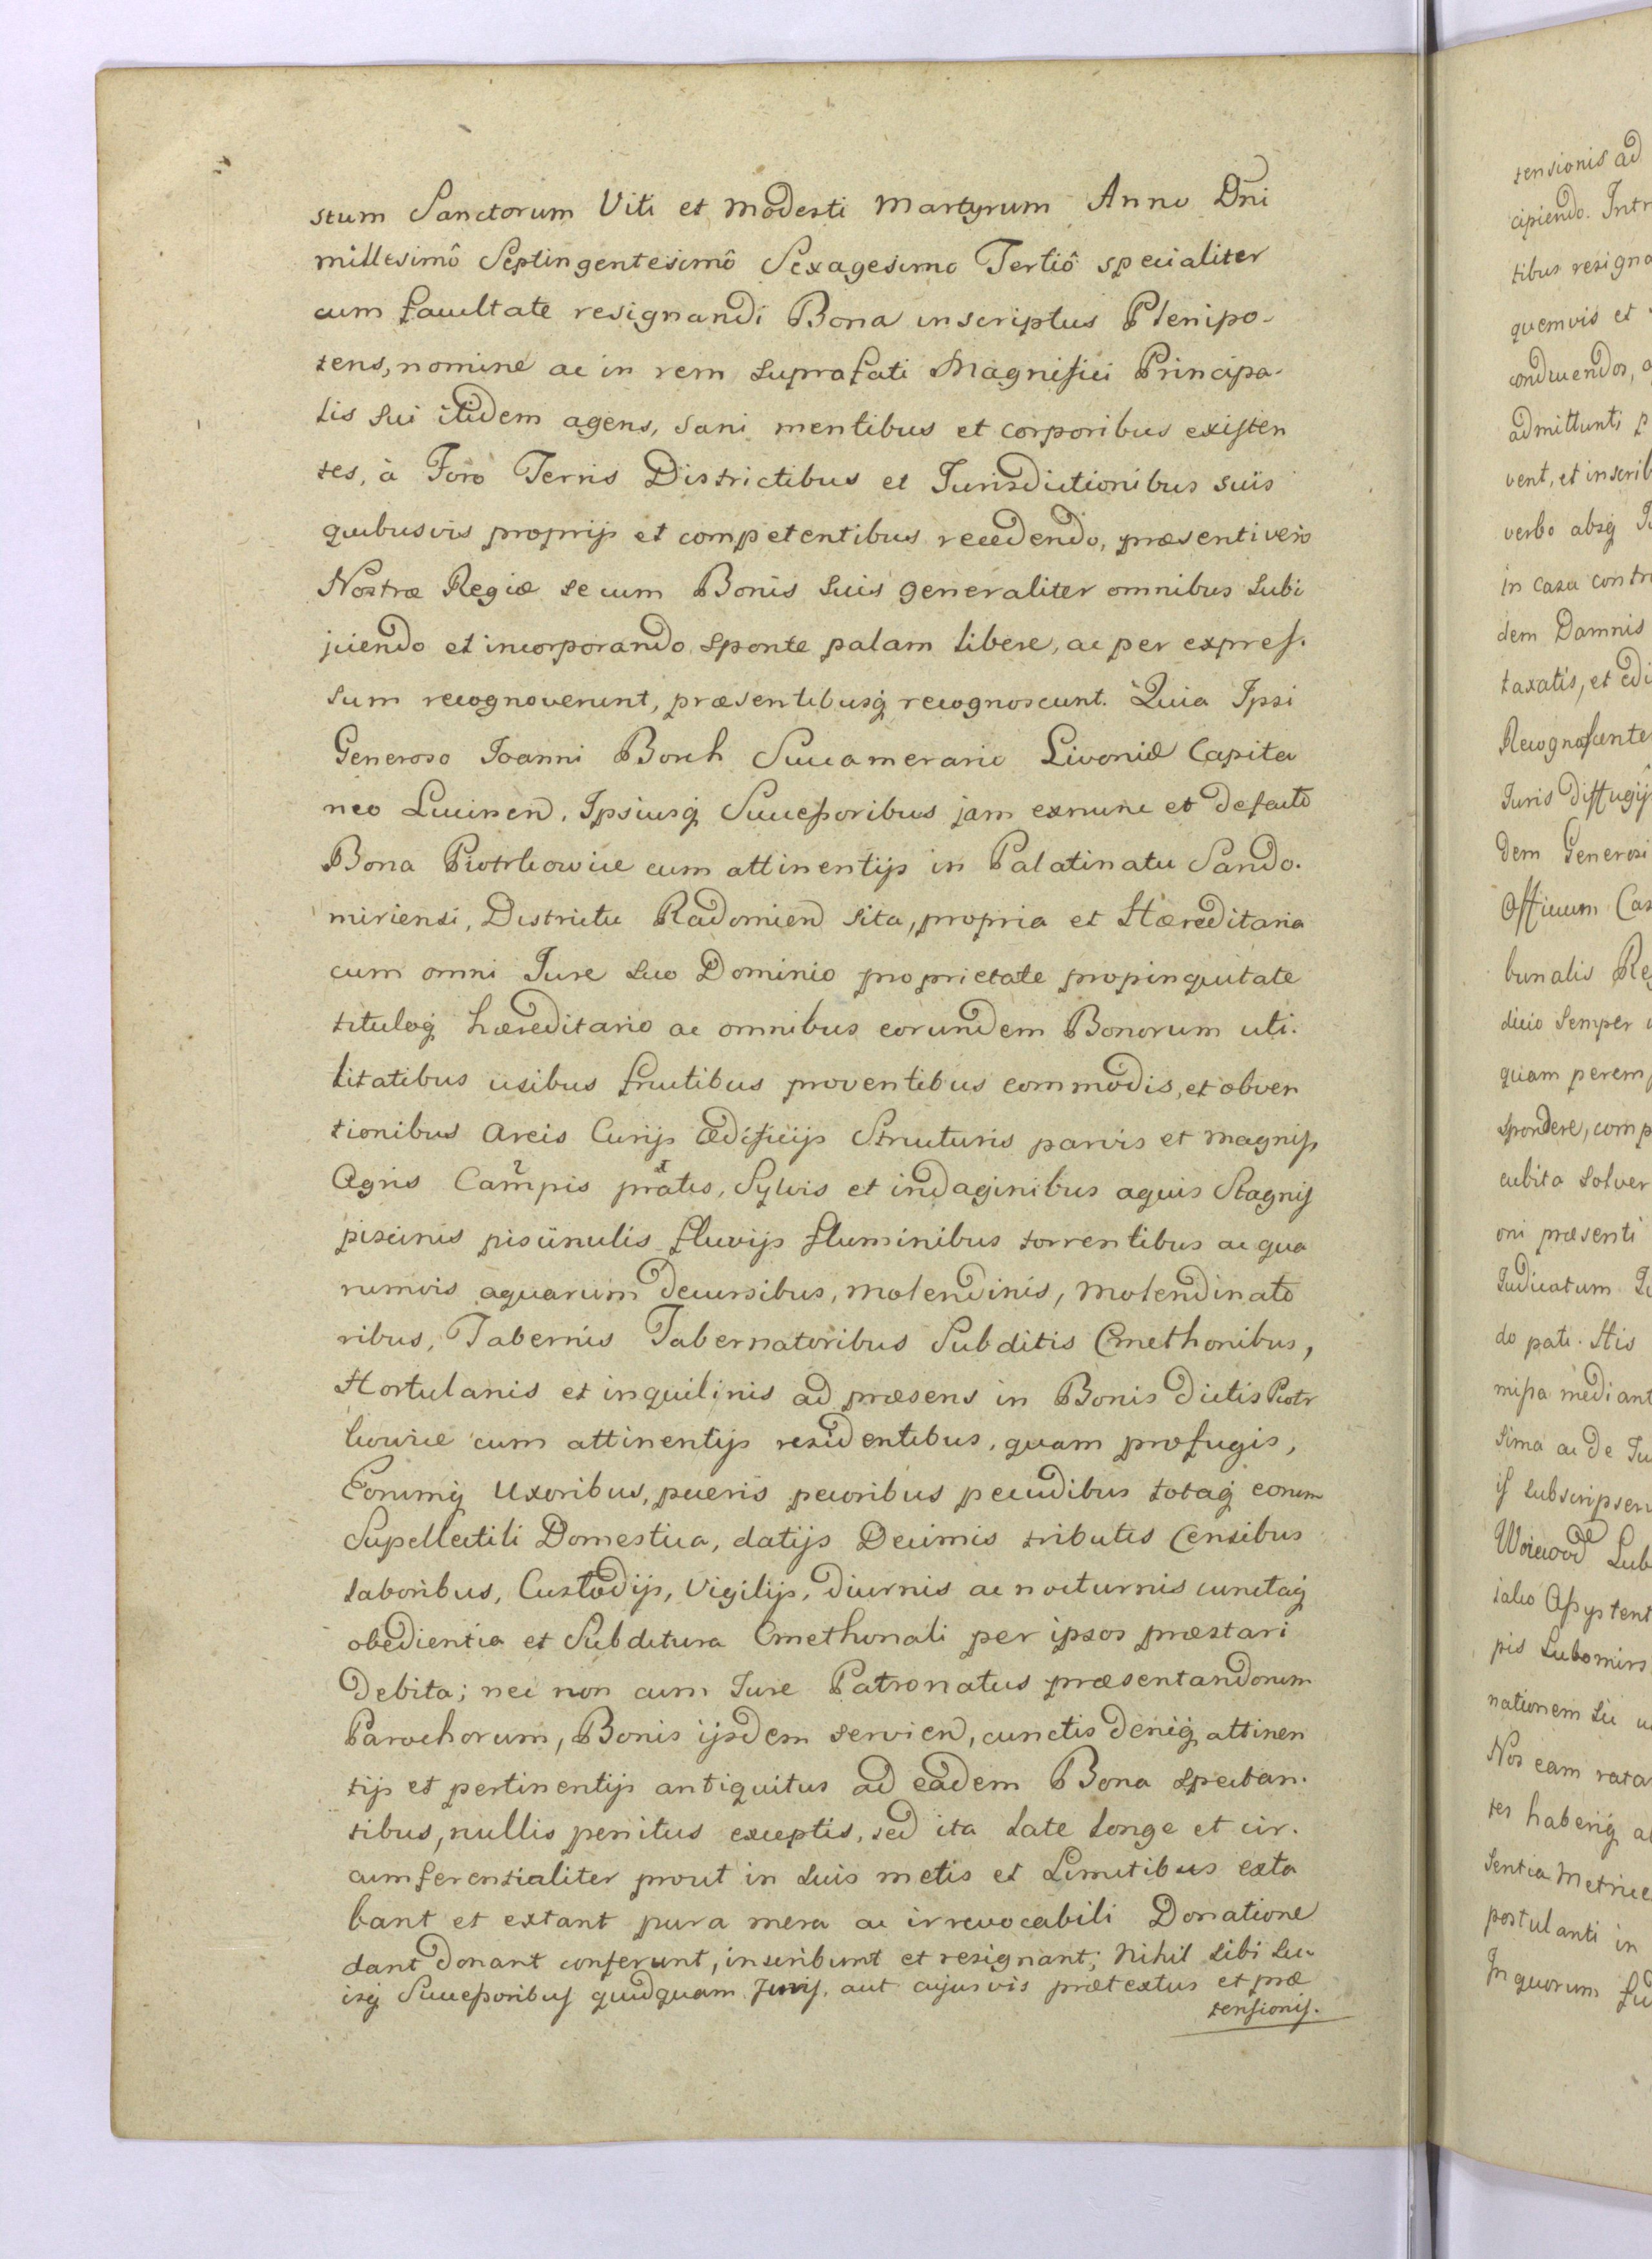 stum Sanctorum Viti et Modesti Martyrum Anno Dni
millesimô Septingentesimô Sexagesimo Tertiô specialiter
cum facultate resignandi Bona inscriptus Plenipo-
tens, nomine ac in rem suprafati Magnifici Principa-
lis sui itidem agens, sani mentibus et corporibus existen
tes, à Foro Terris Districtibus et Jurisdictionibus suis
quibusvis proprijs et competentibus recedendo, præsenti vero
Nostræ Regiæ se cum Bonis suis generaliter omnibus subi
jciendo et incorporando sponte palam libere, ac per expres-
sum recognoverunt, præsentibusq recognoscunt. Quia Ipsi
Generoso Joanni Borch Succamerario Livoniæ Capita
neo Lucinen, Ipsiusq Successoribus jam exnunc et defacto
Bona Piotrkowice cum attinentijs in Palatinatu Sando-
miriensi, Districtu Radomien sita, propria et Hæreditaria
cum omni Jure suo Dominio proprietate propinquitate
tituloq hæreditario ac omnibus eorundem Bonorum uti-
litatibus usibus fructibus proventibus commodis, et obven
tionibus areis Curijs ædificijs Structuris parvis et magnis
Agris Campis pratis, Sylvis et indaginibus aquis Stagnis
piscinis piscinulis fluvijs fluminibus torrentibus ac qua
rumvis aquarum decursibus, molendinis, molendinato
ribus, Tabernis Tabernatoribus Subditis Cmethonibus,
Hortulanis et inquilinis ad præsens in Bonis dictis Piotr
kowice cum attinentijs residentibus, quam profugis,
Eorumq Uxoribus, pueris pecoribus pecudibus totaq eorum
Supellectili Domestica, datijs Decimis tributis Censibus
laboribus, Custodijs, Vigilijs, diurnis ac nocturnis cunctaq
obedientia et Subditura Cmethonali per ipsos præstari
debita; nec non cum Jure Patronatus præsentandorum
Parochorum, Bonis ijsdem servien, cunctis deniq attinen
tijs et pertinentijs antiquitus ad eadem Bona spectan-
tibus, nullis penitus exceptis, sed ita late longe et cir-
cumferentialiter prout in suis metis et Limitibus exta
bant et extant pura mera ac irrevocabili Donatione
dant donant conferunt, inscribunt et resignant; nihil sibi su-
isq Successoribus quidquam Juris, aut cujusvis prætextus et præ
tensionis.
tensionis ad
cipiendo. Intr
tibus resigna
quemvis et
admittunt, p
vent, et inscrib
verbo absq
in casu contr
dem Damnis
taxatis, et
Juris diffugij
dem Generosi
Officium Cas
bunalis Re
dicio semper
quam perem
spondere, comp
cubita solver
oni præsenti
Judicatum
do pati. His
missa mediant
sima ac de Ju
is subscripser
pis Lubomirs
nationem
Nos eam rata
tes habenq
sentia Metrice
postulanti in
In quorum